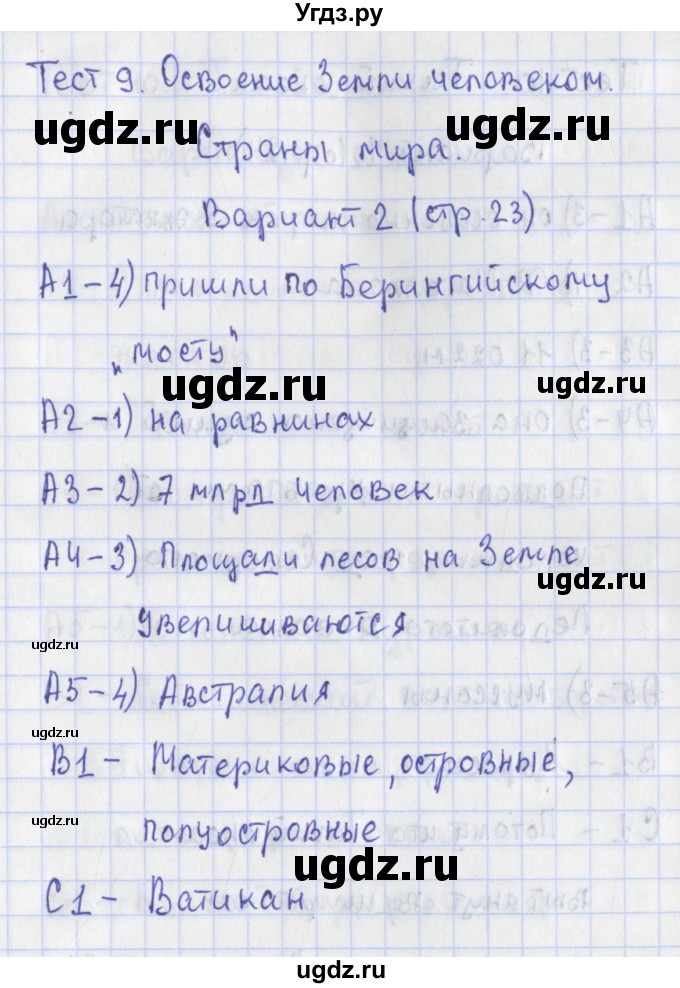 Угдз.ру
Тест 9. Освоение Земли человеком.
ugdz.ru ugdz.ru
Страны мира.
Вариант 2 (стр. 23)
А1 - 4) пришли по Берингийскому
„мосту"
ugdz.ru ugdz.ru
А2 - 1) на равнинах
А3 - 2) 7 млрд человек
А4 - 3) Площади лесов на Земле
ugdz.ru
увеличиваются
ugdz.ru
А5 - 4) Австралия
ugdz.ru
В1 - Материковые, островные,
ugdz.ru
полуостровные
ugdz.ru
С1 - Ватикан
ugdz.ru